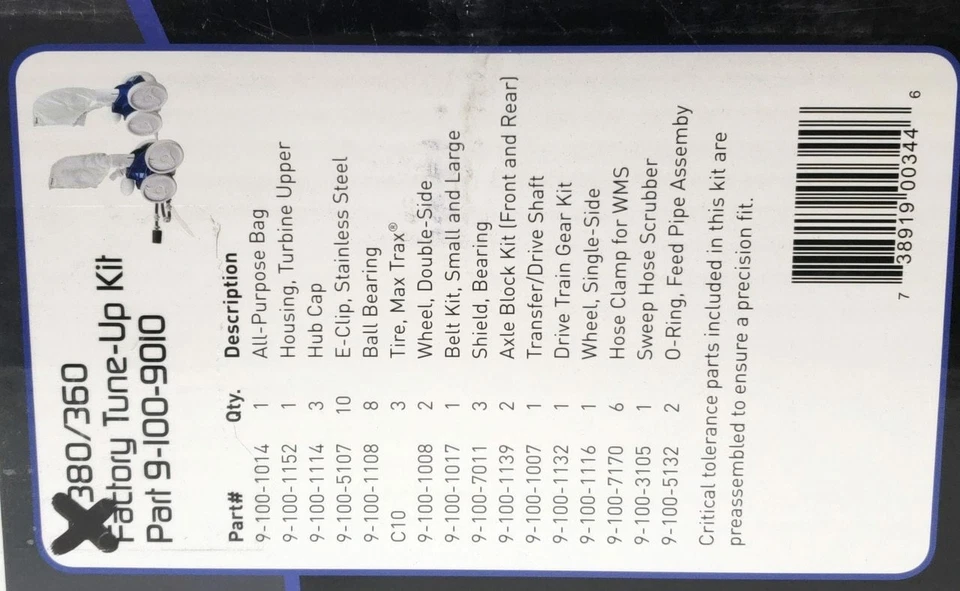 380/360
Factory Tune-Up Kit
Part 9-100-9010
Part# Qty. Description
9-100-1014 1 All-Purpose Bag
9-100-1152 1 Housing, Turbine Upper
9-100-1114 3 Hub Cap
9-100-5107 10 E-Clip, Stainless Steel
9-100-1108 8 Ball Bearing
C10 3 Tire, Max Trax®
9-100-1008 2 Wheel, Double-Side
9-100-1017 1 Belt Kit, Small and Large
9-100-7011 3 Shield, Bearing
9-100-1139 2 Axle Block Kit (Front and Rear)
9-100-1007 1 Transfer/Drive Shaft
9-100-1132 1 Drive Train Gear Kit
9-100-1116 1 Wheel, Single-Side
9-100-7170 6 Hose Clamp for WMS
9-100-3105 1 Sweep Hose Scrubber
9-100-5132 2 O-Ring, Feed Pipe Assemby
Critical tolerance parts included in this kit are
preassembled to ensure a precision fit.
7 38919 00344 6